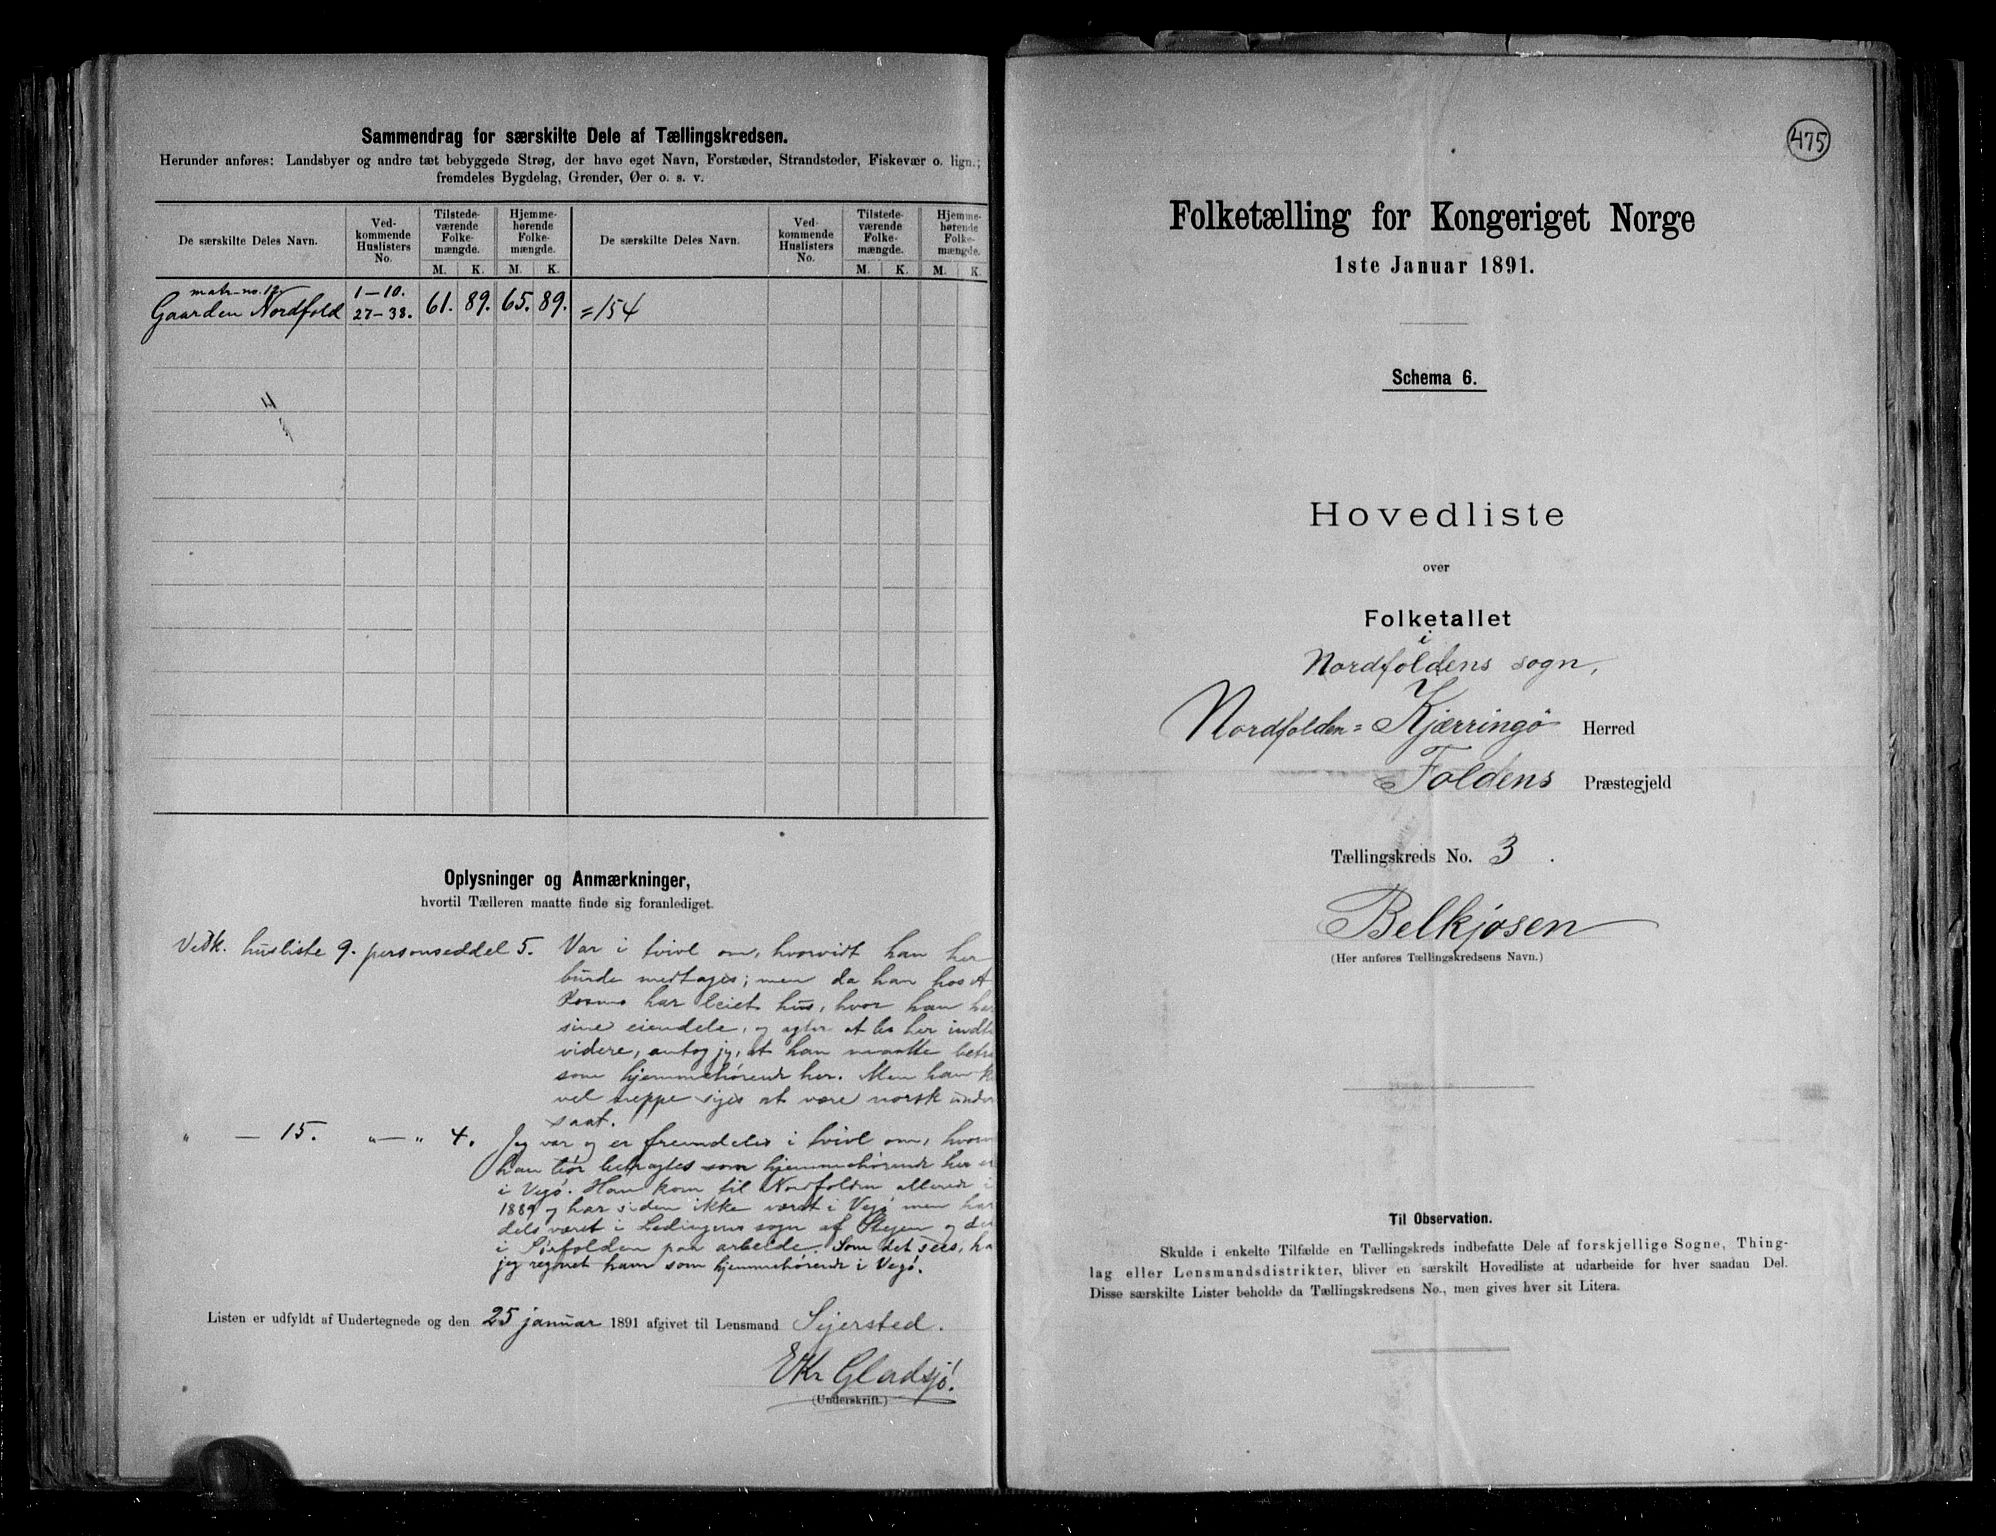 Sammendrag for særskilte Dele af Tællingskredsen.
Herunder anføres: Landsbyer og andre tæt bebyggede Strøg, der have eget Navn, Forstæder, Strandsteder, Fiskevær o. lign.;
fremdeles Bygdelag, Grender, Øer o. s. v.
De særskilte Deles Navn. Ved-kommende Huslisters No. Tilstede-værende Folke-mængde. M. K. Hjemme-hørende Folke-mængde. M. K. De særskilte Deles Navn. Ved-kommende Huslisters No. Tilstede-værende Folke-mængde. M. K. Hjemme-hørende Folke-mængde. M. K.
matr-no. 12 1-10.
Gaarden Nordfold 27-38. 61. 89. 65. 89. =154
Oplysninger og Anmærkninger,
hvortil Tælleren maatte finde sig foranlediget.
Vedk. husliste 9. personseddel 5. Var i tvivl om, hvorvidt han her
burde medtages; men da han hos A
har leiet hus, hvor han har
sine eiendele, og agter at bo her indtil
videre, antog jeg, at han maatte
som hjemmehørende her. Men han
vel neppe siges at være norsk under
saat.
" — 15. " — " 4. Jeg var og er fremdeles i tvivl om,
han bør betragtes som hjemmehørende her
i Vegø. Han kom til Nordfolden allerede i
1889 og har siden ikke været i Vegø men har
dels været i Lødingens sogn af Stegen og
i Sørfolden paa arbeide. Som det sees,
jeg regnet ham som hjemmehørende i Vegø.
Listen er udfyldt af Undertegnede og den 25 januar 1891 afgivet til Lensmand Sijersted.
EKr Gladsjø.
(Underskrift.)
475
Folketælling for Kongeriget Norge
1ste Januar 1891.
Schema 6.
Hovedliste
over
Folketallet
i
Nordfoldens sogn,
Nordfolden=Kjærringø Herred
Foldens Præstegjeld
Tællingskreds No. 3.
Belkjøsen
(Her anføres Tællingskredsens Navn.)
Til Observation.
Skulde i enkelte Tilfælde en Tællingskreds indbefatte Dele af forskjellige Sogne, Thing-
lag eller Lensmandsdistrikter, bliver en særskilt Hovedliste at udarbeide for hver saadan Del.
Disse særskilte Lister beholde da Tællingskredsens No., men gives hver sit Litera.